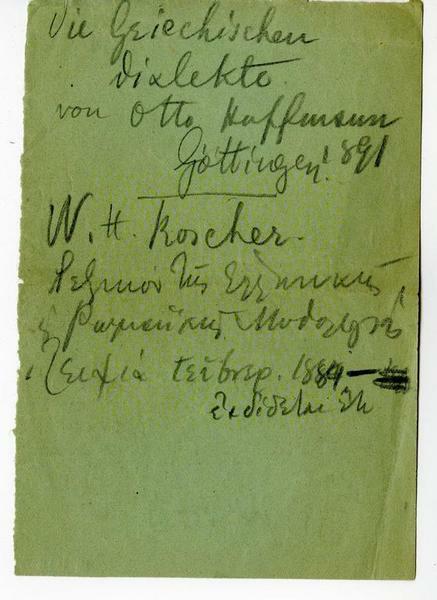 Die Griechischen
Dialekte.
von Otto Hoffmann
Göttingen 1891
W. H. Roscher.
Λεξικόν της Ελληνικής
Ρωμαϊκής Μυθολογίας
Λειψία Τεϋβνερ. 1884 —
εκδίδεται